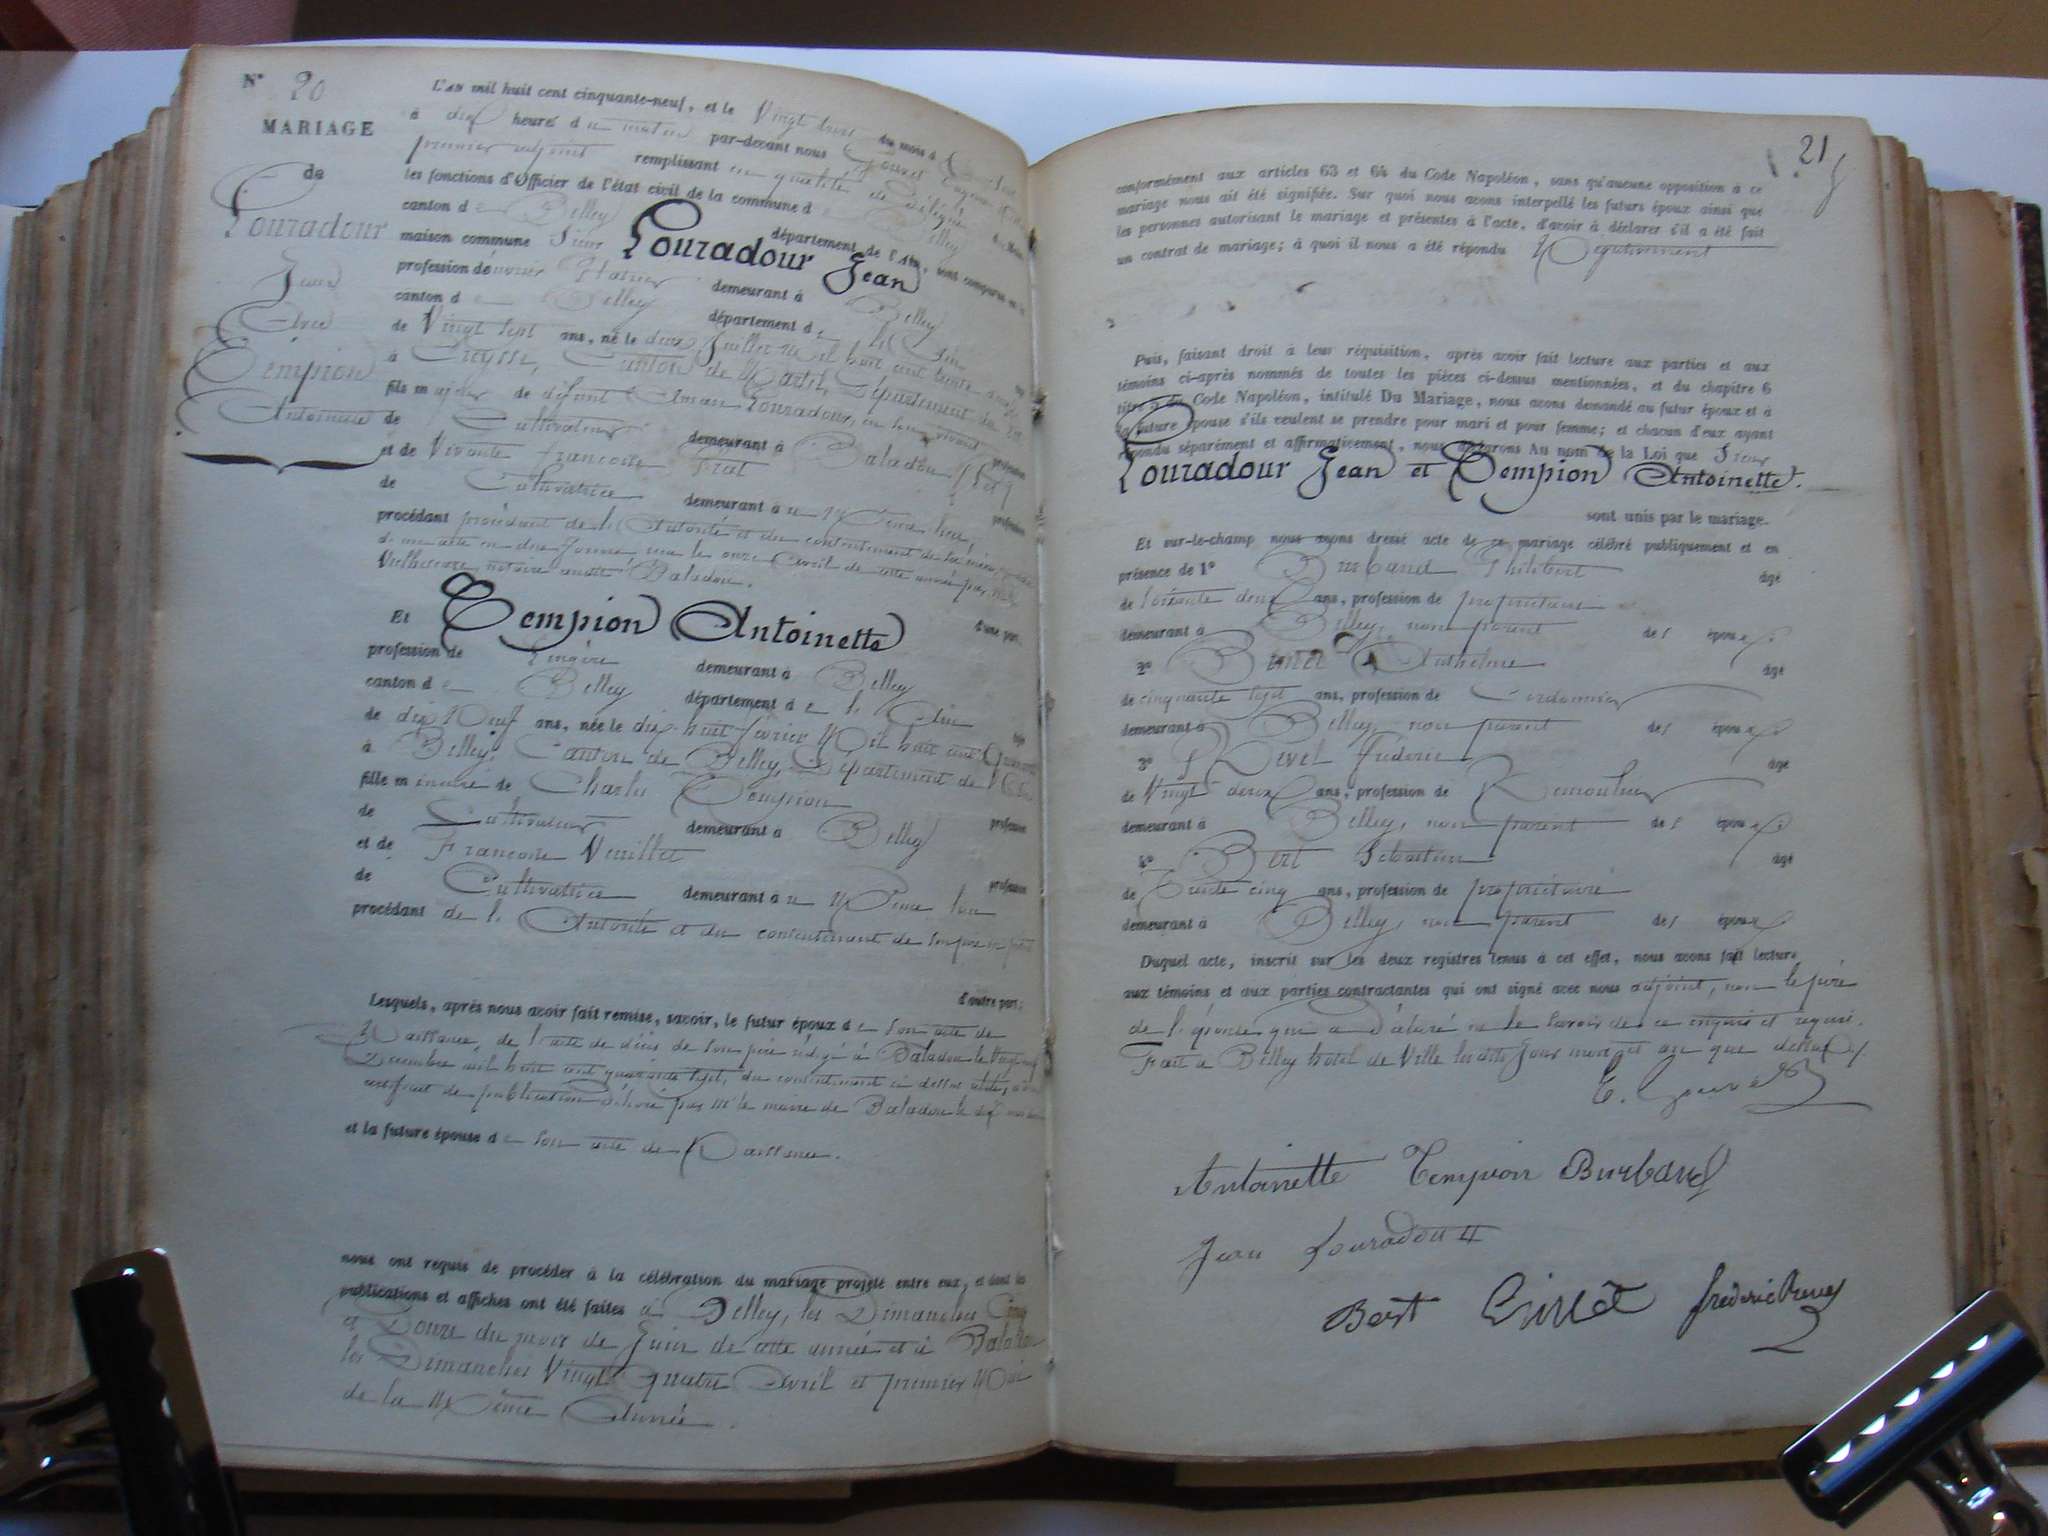 N° 20
MARIAGE
de
Louradour
Jean
Avec
Tempion
Antoinette
L'AN mil huit cent cinquante-neuf, et le Vingt trois du mois d
à dix heures d u matin par-devant nous Gouvet
premier adjoint remplissant en qualité de Délégué
les fonctions d'Officier de l'état civil de la commune d
canton d e Belley département de l'AIN, sont comparus en la
maison commune Sieur Louradour Jean
profession d'ouvrier Platrier demeurant à Belley
canton d e Belley département d e l'Ain
de Vingt Sept ans, né le deux Juillet Mil huit cent trente
à Creysse, Canton de Martel, Département du Lot
fils majeur de défunt Aman Louradour, en son vivant profession
de Cultivateur demeurant à Baladou (Lot)
et de Vivante françoise Prat profession
de Cultivatrice demeurant à u Même lieu,
procédant procédant de l'Autorité et du consentement de sa mère,
d'un acte en due forme, reçu le onze Avril de cette année par
Vielhescaze, notaire audit Baladou.
d'une part.
Et Tempion Antoinette
profession de Lingère demeurant à Belley
canton d e Belley département d e l'Ain
de dix Neuf ans, née le dix huit fevrier Mil huit cent Quarante
à Belley, Canton de Belley, Département de l'Ain
fille mineure de Charles Tempion profession
de Cultivateur demeurant à Belley
et de Françoise Veuillet profession
de Cultivatrice demeurant à u Même lieu
procédant de l'Autorité et du consentement de son père
d'autre part:
Lesquels, après nous avoir fait remise, savoir, le futur époux d e son acte de
Naissance, de l'acte de décès de son père rédigé à Baladou le Vingt
Décembre mil huit cent quarante sept, du consentement ci dessus
certificat de publication délivré par Mr le maire de Baladou le dix
et la future épouse d e son acte de Naissance.
nous ont requis de procéder à la célébration du mariage projeté entre eux, et dont les
publications et affiches ont été faites à Belley, les Dimanches Cinq
et Douze du mois de Juin de cette année et à Baladou
les Dimanches Vingt Quatre Avril et premier Mai
de la Même Année.
21
conformément aux articles 63 et 64 du Code Napoléon, sans qu'aucune opposition à ce
mariage nous ait été signifiée. Sur quoi nous avons interpellé les futurs époux ainsi que
les personnes autorisant le mariage et présentes à l'acte, d'avoir à déclarer s'il a été fait
un contrat de mariage; à quoi il nous a été répondu Négativement
Puis, faisant droit à leur réquisition, après avoir fait lecture aux parties et aux
témoins ci-après nommés de toutes les pièces ci-dessus mentionnées, et du chapitre 6
titre 5 du Code Napoléon, intitulé Du Mariage, nous avons demandé au futur époux et à
la future épouse s'ils veulent se prendre pour mari et pour femme; et chacun d'eux ayant
répondu séparément et affirmativement, nous déclarons AU nom de la Loi que Sieur
Louradour Jean et Tempion Antoinette.
sont unis par le mariage.
Et sur-le-champ nous avons dressé acte de ce mariage célébré publiquement et en
présence de 1° Burbaud Philibert âgé
de Soixante deux ans, profession de propriétaire
demeurant à Belley, non parent des époux
2° Binet Anthelme âgé
de cinquante sept ans, profession de Cordonnier
demeurant à Belley, non parent des époux
3° Revel frederic âgé
de Vingt deux ans, profession de Remouleur
demeurant à Belley, non parent des époux
4° Bert Sebastien âgé
de Trente cinq ans, profession de propriétaire
demeurant à Belley, non parent des époux
Duquel acte, inscrit sur les deux registres tenus à cet effet, nous avons fait lecture
aux témoins et aux parties contractantes qui ont signé avec nous adjoint, non le père
de l'épouse qui a déclaré ne le savoir de ce enquis et requis.
Fait à Belley hotel de Ville lesdits Jour mois et an que dessus
Antoinette Tempion Burbaud
Jean Louradour
Bert Binet frederic Revel